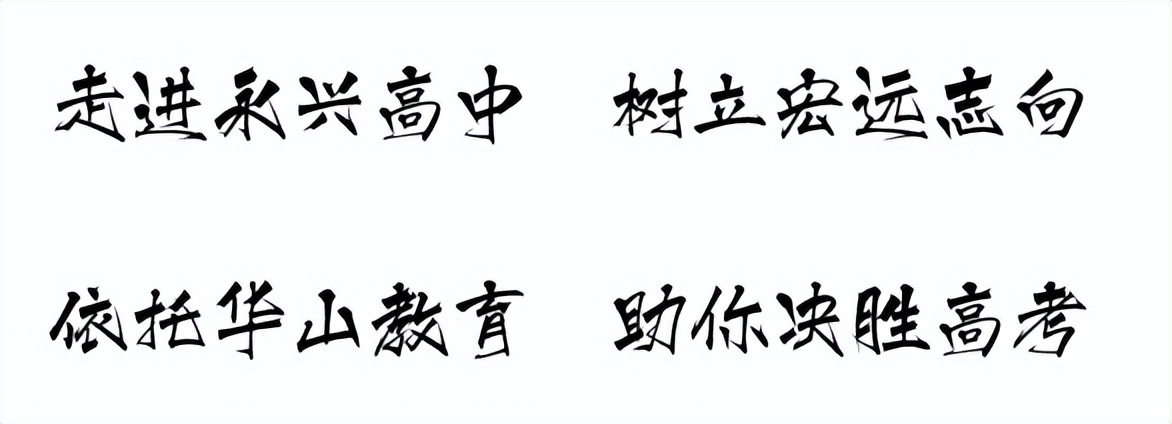 走进永兴高中 树立宏远志向
依托华山教育 助你决胜高考